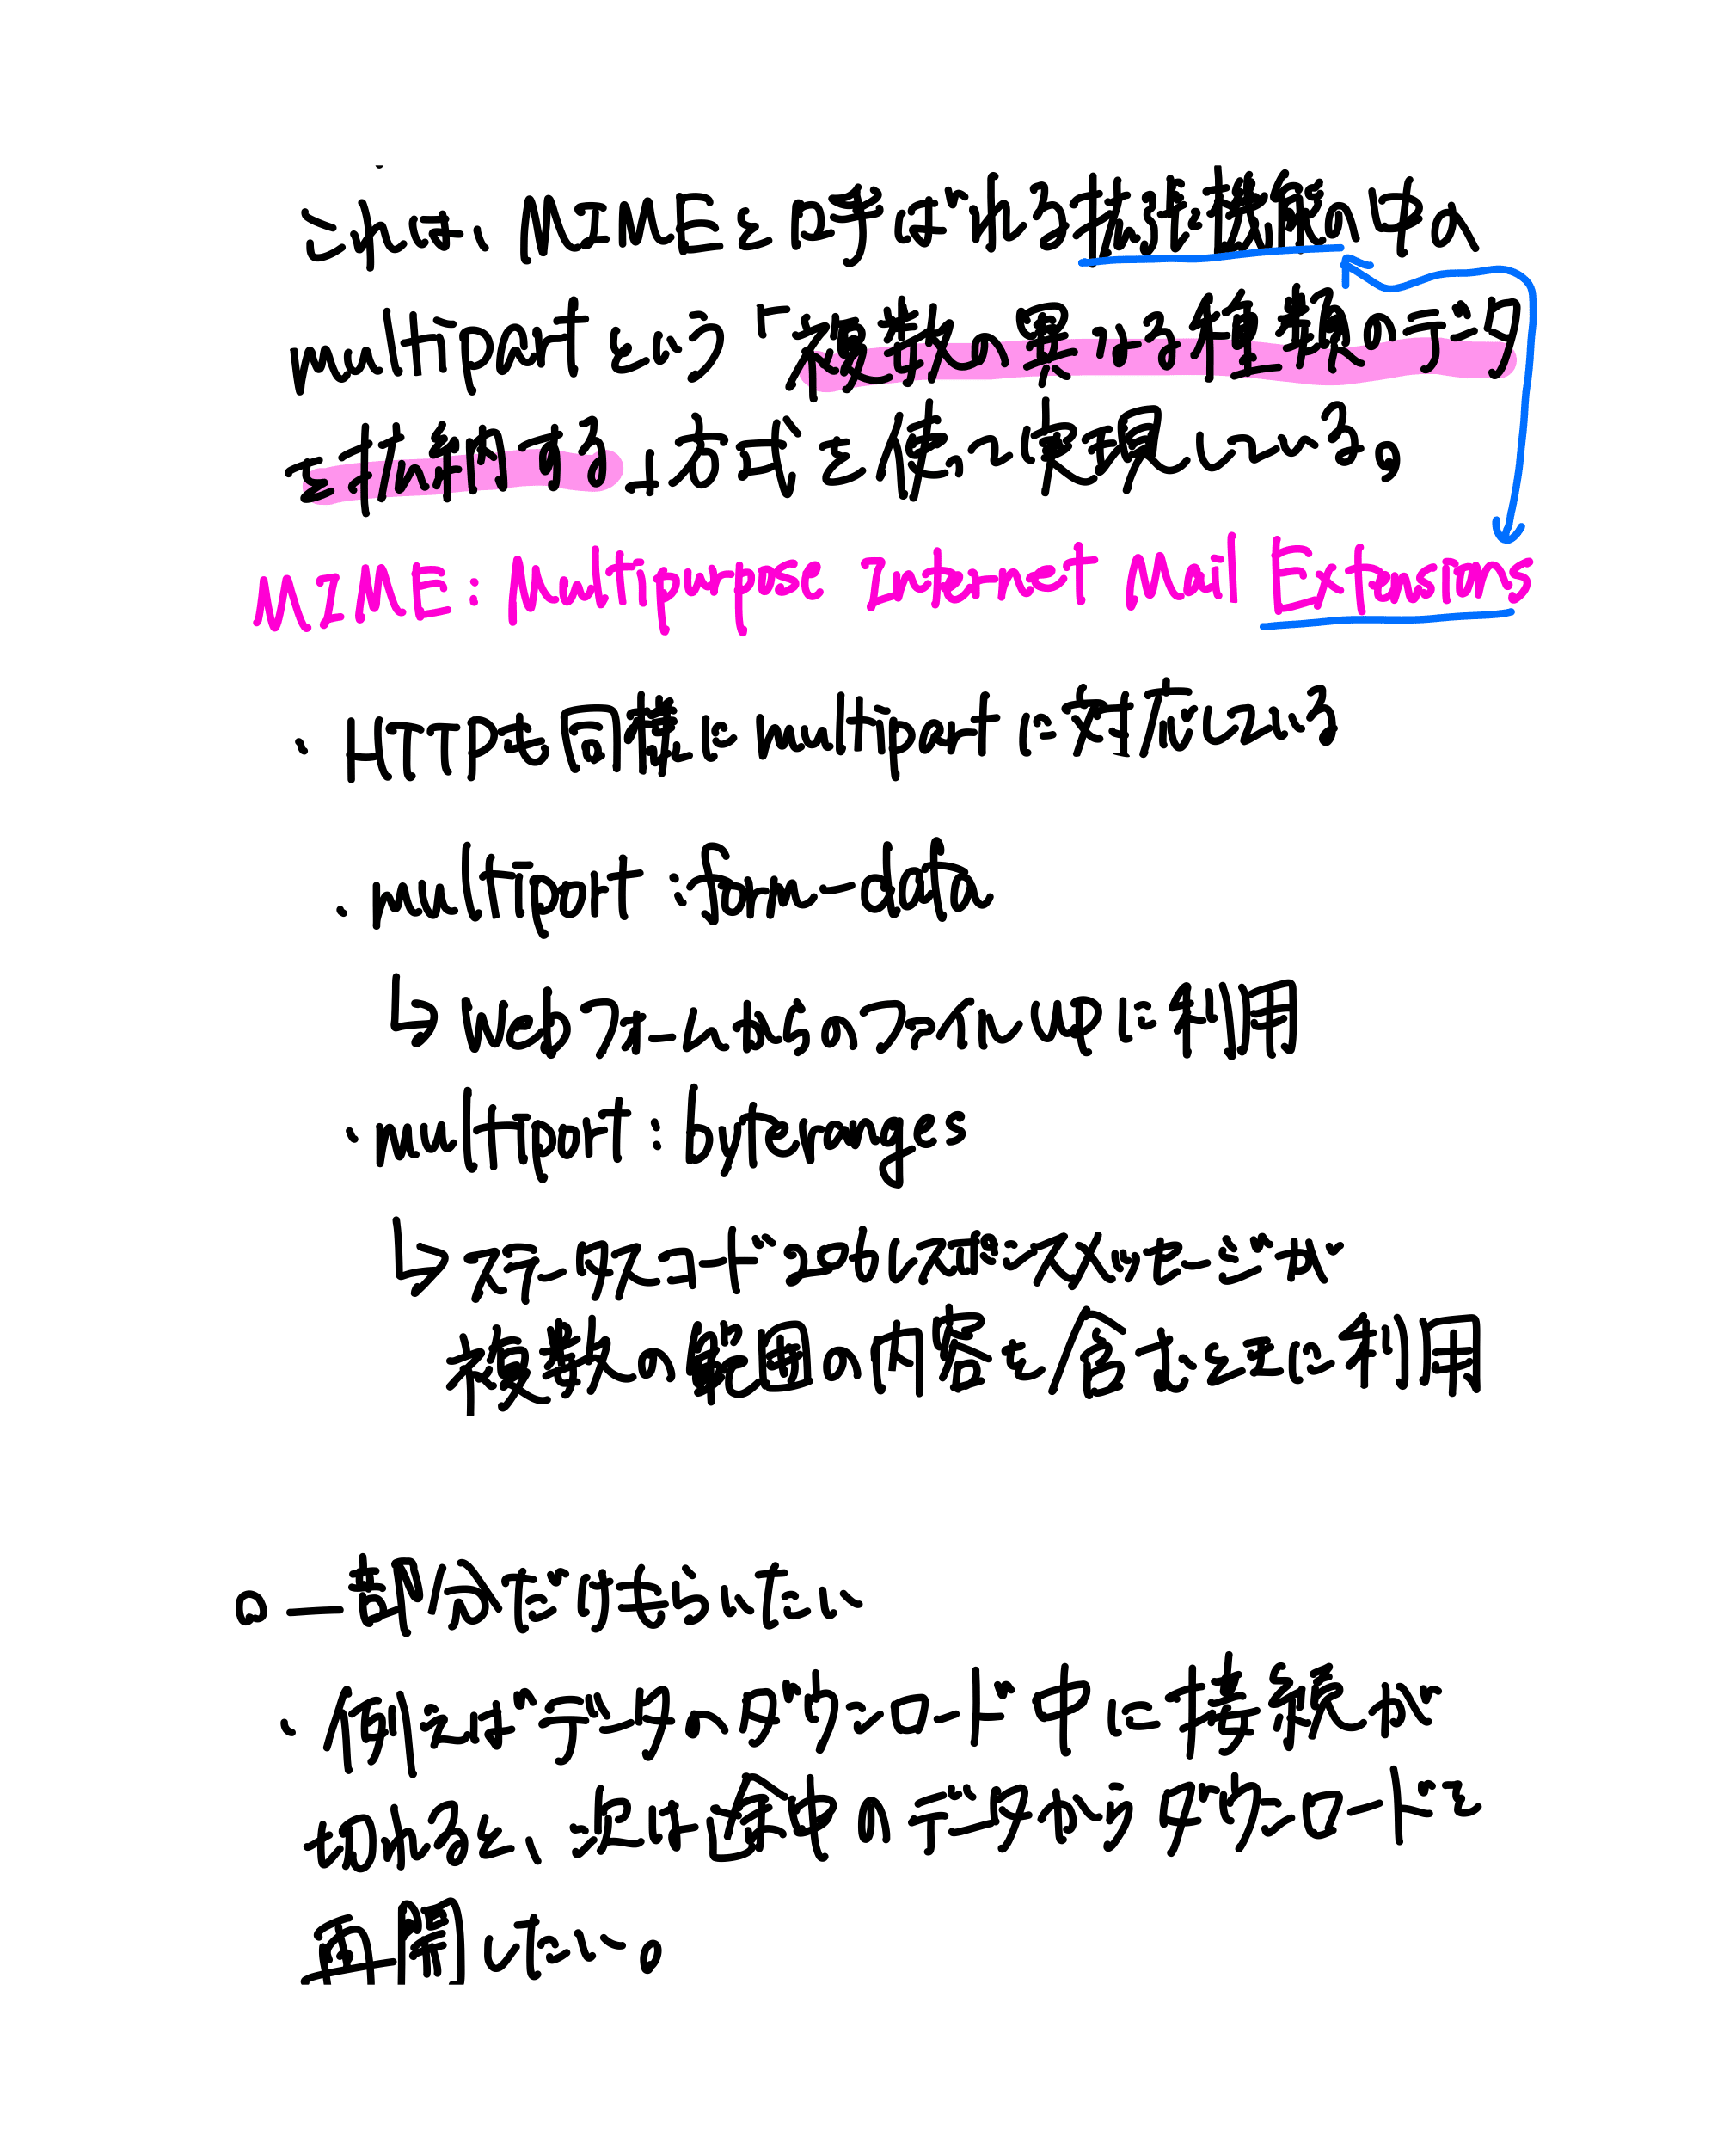 これは、MIMEと呼ばれる拡張機能の中の
multipartという「複数の異なる種類のデータ
を格納する」方式を使って実現している。
MIME: Multipurpose Internet Mail Extensions
・HTTPも同様にmultipartに対応している
・multipart:form-data
↳ Webフォームからのファイルupに利用
・multipart:byteranges
↳ステータスコード206レスポンスメッセージが
複数の範囲の内容を含むときに利用
○一部分だけもらいたい
・例えばデータのダウンロード中に接続が
切れると、次は途中のデータからダウンロードを
再開したい。